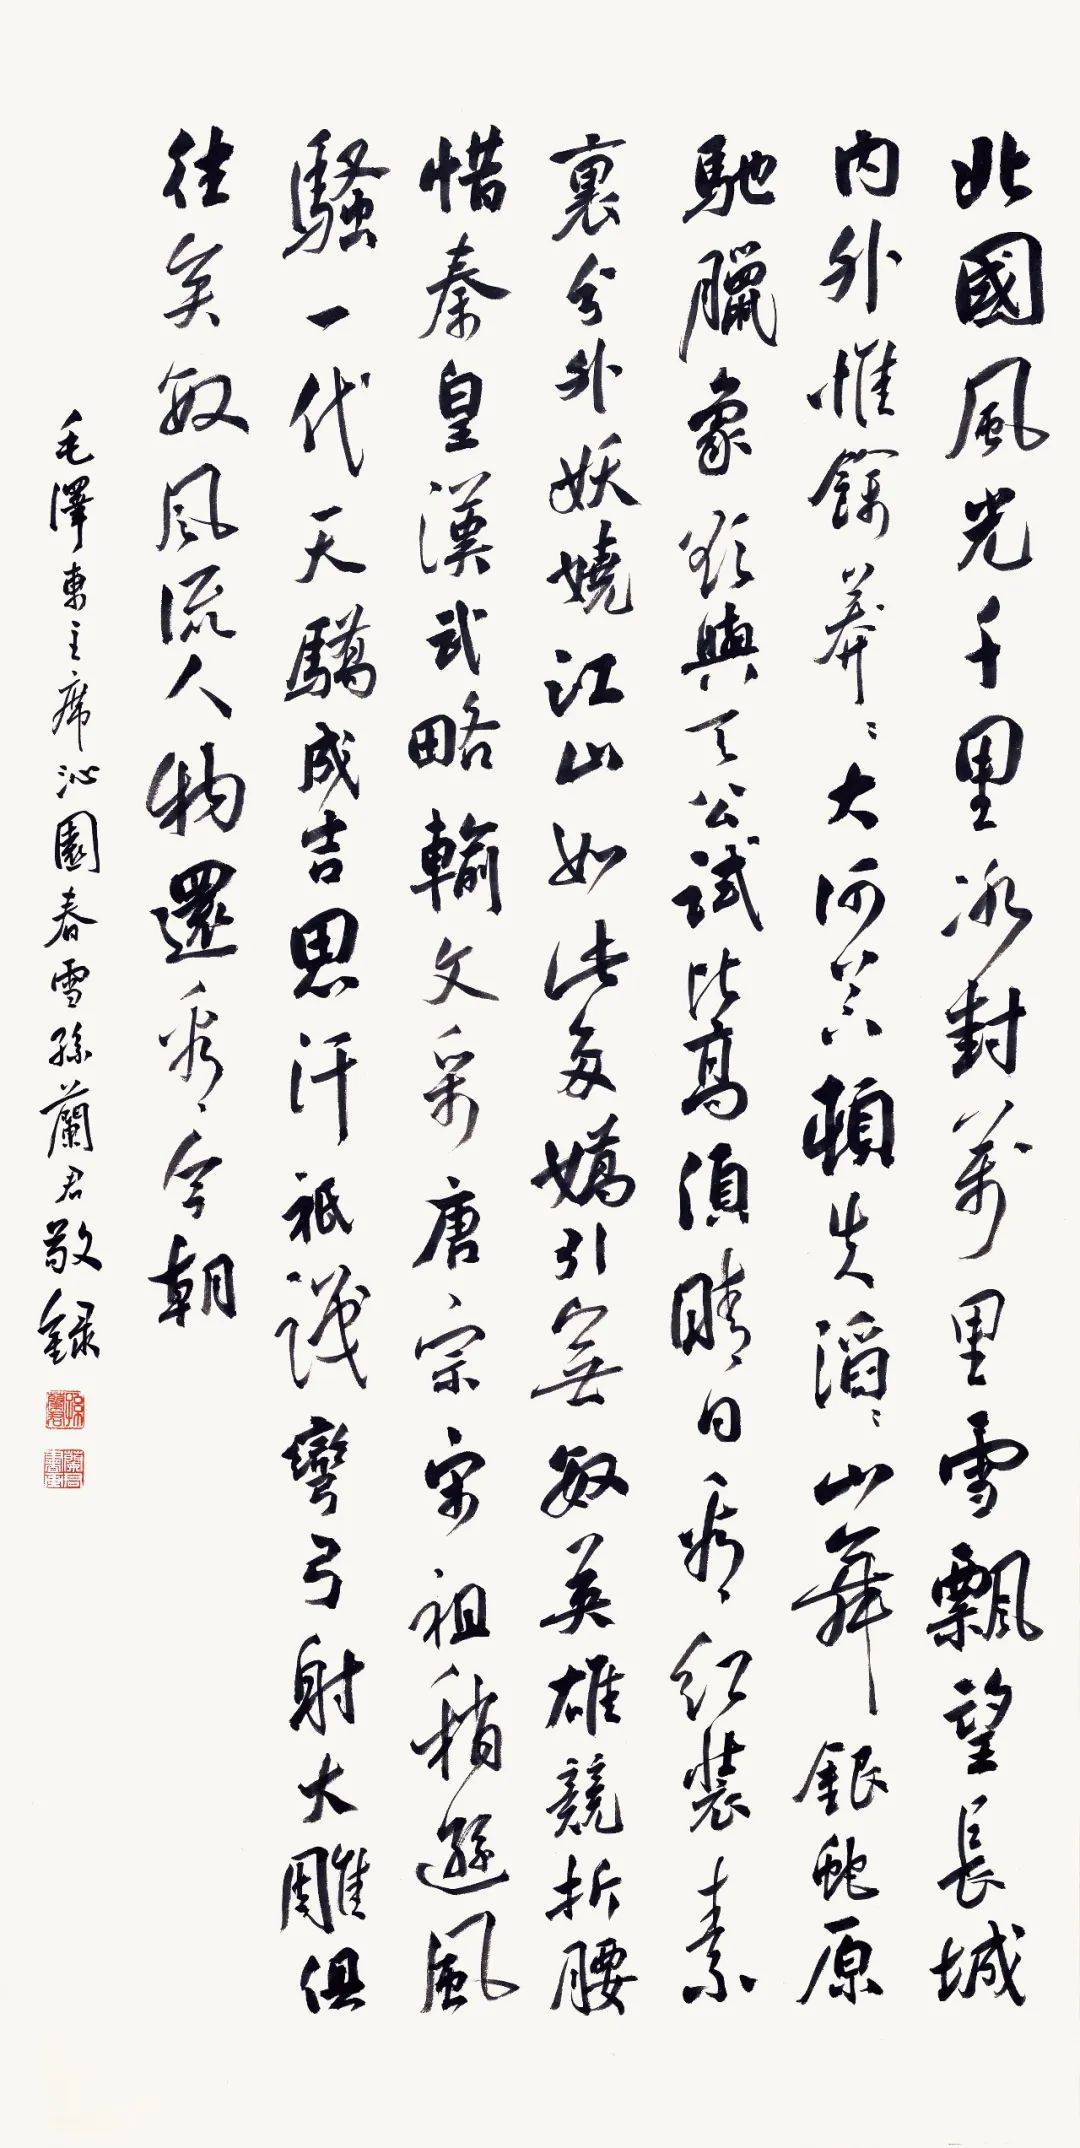 北國風光千里冰封萬里雪飄望長城
内外惟餘莽〻大河上下頓失滔〻山舞銀蛇原
馳臘象欲與天公試比高須晴日看紅裝素
裹分外妖嬈江山如此多嬌引無數英雄競折腰
惜秦皇漢武略輸文采唐宗宋祖稍遜風
騷一代天驕成吉思汗祗識彎弓射大雕俱
往矣數風流人物還看今朝
毛澤東主席沁園春雪孫蘭君敬錄